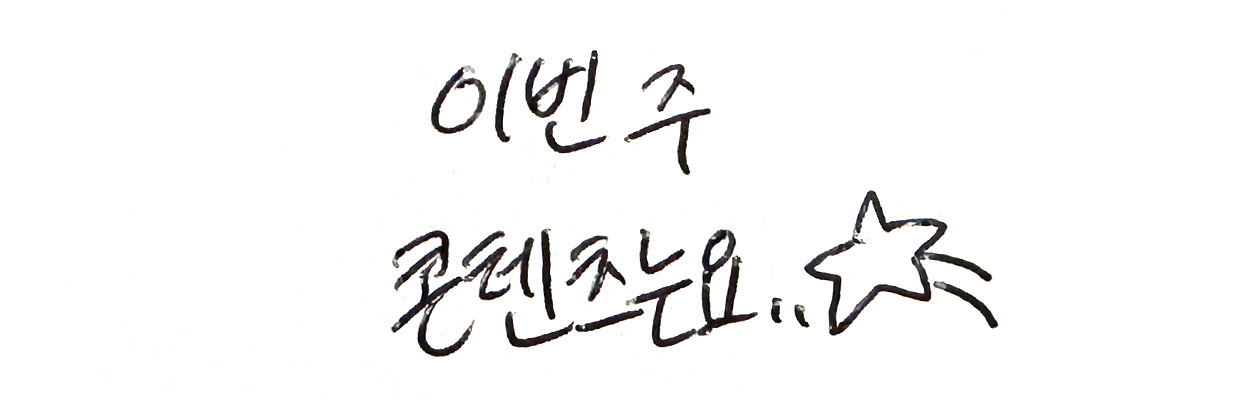 이번 주
콘텐츠는요..